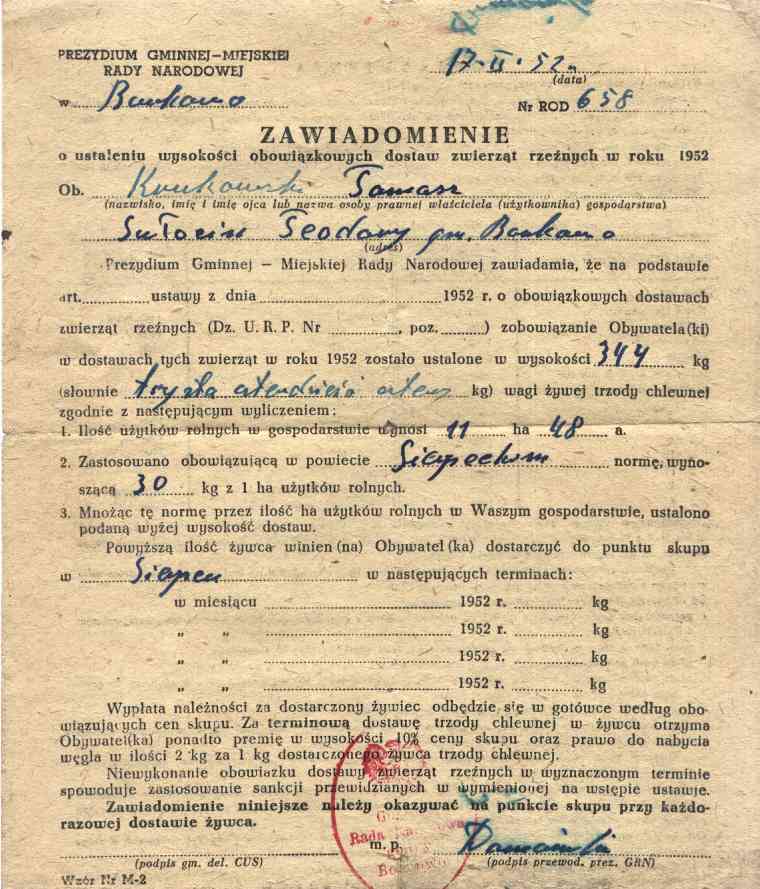 PREZYDIUM GMINNEJ—MIEJSKIEJ
RADY NARODOWEJ
w Borkowo
17·II·52 r
(data)
Nr ROD 658
ZAWIADOMIENIE
o ustaleniu wysokości obowiązkowych dostaw zwierząt rzeźnych w roku 1952
Ob. Tomasz
(nazwisko, imię i imię ojca lub nazwa osoby prawnej właściciela (użytkownika) gospodarstwa)
Teodory gm. Borkowo
(adres)
Prezydium Gminnej — Miejskiej Rady Narodowej zawiadamia, że na podstawie
art. ustawy z dnia 1952 r. o obowiązkowych dostawach
zwierząt rzeźnych (Dz. U. R. P. Nr , poz. ) zobowiązanie Obywatela(ki)
w dostawach tych zwierząt w roku 1952 zostało ustalone w wysokości 344 kg
(słownie trzysta czterdzieści cztery kg) wagi żywej trzody chlewnej
zgodnie z następującym wyliczeniem:
1. Ilość użytków rolnych w gospodarstwie wynosi 11 ha 48 a.
2. Zastosowano obowiązującą w powiecie normę, wyno-
szącą 30 kg z 1 ha użytków rolnych.
3. Mnożąc tę normę przez ilość ha użytków rolnych w Waszym gospodarstwie, ustalono
podaną wyżej wysokość dostaw.
Powyższą ilość żywca winien (na) Obywatel (ka) dostarczyć do punktu skupu
w Sierpcu w następujących terminach:
w miesiącu 1952 r. kg
„ „ 1952 r. kg
„ „ 1952 r. kg
„ „ 1952 r. kg
Wypłata należności za dostarczony żywiec odbędzie się w gotówce według obo-
wiązujących cen skupu. Za terminową dostawę trzody chlewnej w żywcu otrzyma
Obywatel(ka) ponadto premię w wysokości 10% ceny skupu oraz prawo do nabycia
węgla w ilości 2 kg za 1 kg dostarczonego żywca trzody chlewnej.
Niewykonanie obowiazku dostawy zwierząt rzeźnych w wyznaczonym terminie
spowoduje zastosowanie sankcji przewidzianych w wymienionej na wstępie ustawie.
Zawiadomienie niniejsze należy okazywać na punkcie skupu przy każdo-
razowej dostawie żywca.
Rada Narodowa
m. p.
(podpis gm. del. CUS)
(podpis przewod. prez. GRN)
Wzór Nr M-2